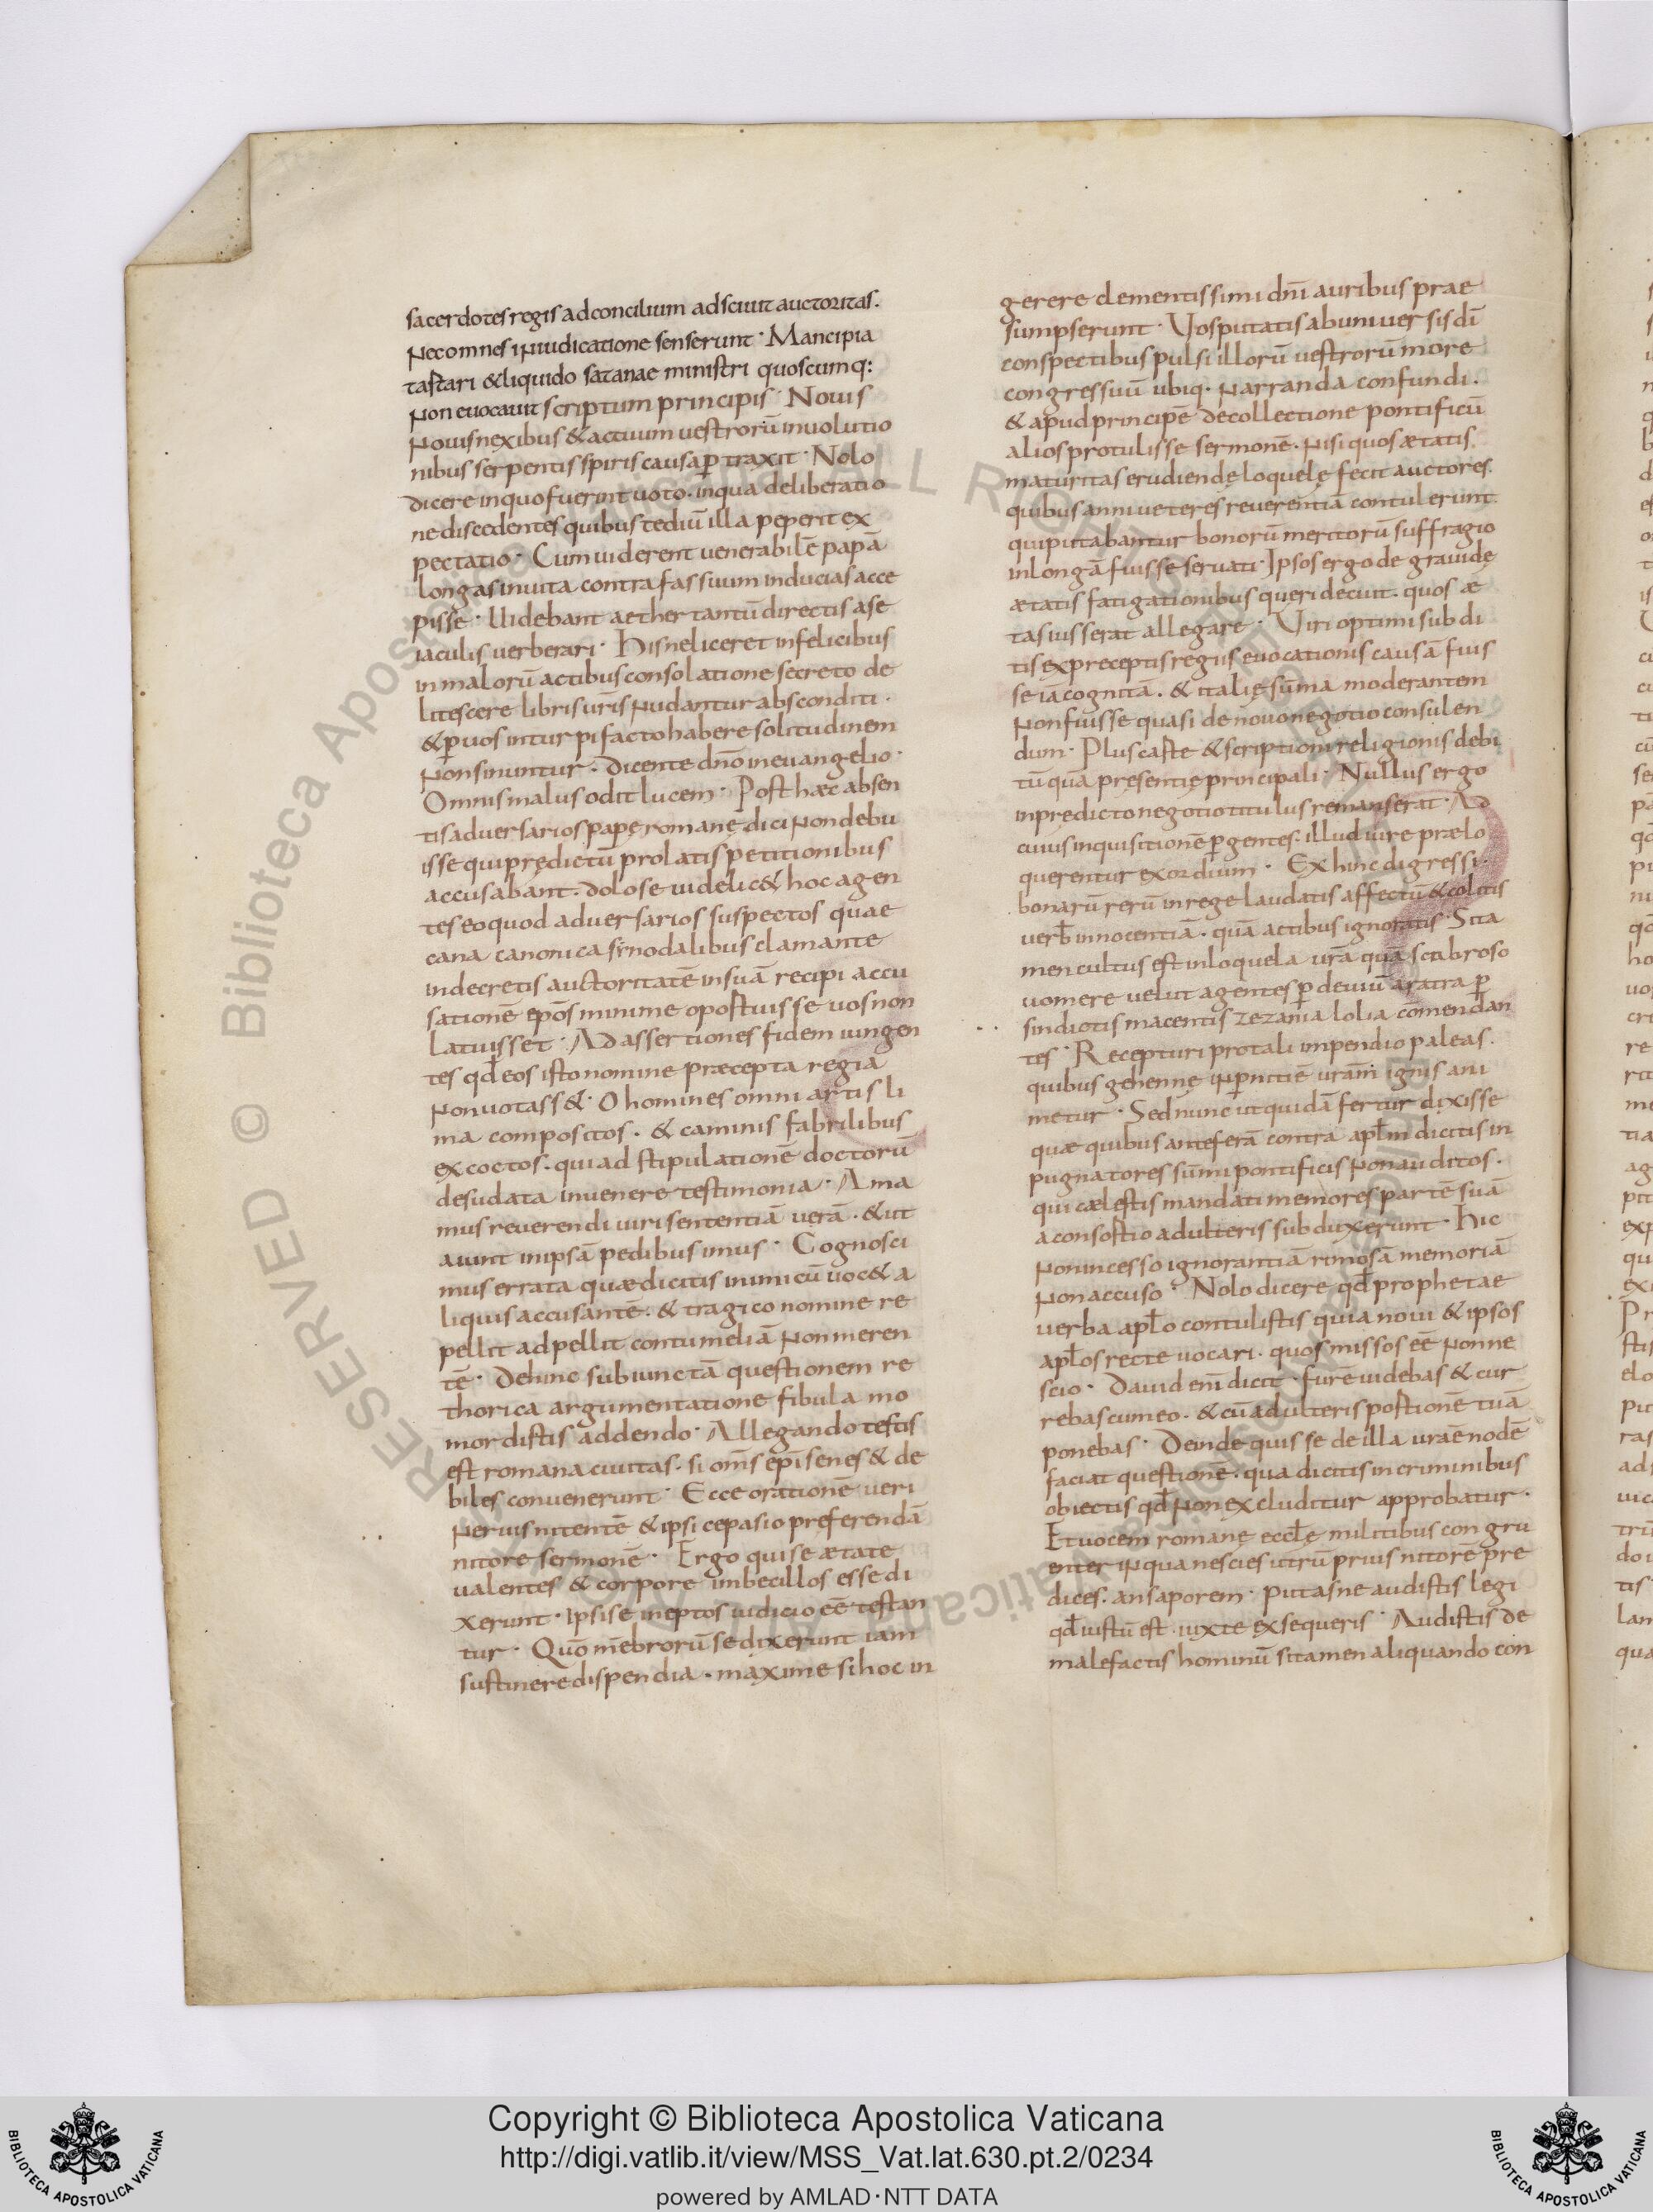 sacerdotes regis ad concilium adsciuit auctoritas.
Nec omnes in iudicatione senserunt · Mancipia
tastari & liquido satanae ministri quoscumq:
Non euocauit scriptum principis · Nouis
Nouis nexibus & actuum uestrorū inuolutio
nibus serpentis spiris causa ꝑtraxit · Nolo
dicere in quo fuerint uoto · in qua deliberatio
ne discedentes quibus tediū illa peperit ex
pectatio · Cum uiderent uenerabilē papā
longas inuita contra fas suum inducias acce
pisse · Uidebant aether tantū directis a se
iaculis uerberari · His ne liceret infelicibus
in malorū actibus consolatione secreto de
litescere libris uris̄ nudantur absconditi ·
& ꝑ uos in turpi facto habere solitudinem
Non sinuntur · dicente dnō in euangelio ·
Omnis malus odit lucem · Post haec absen
tis aduersarios papę romanę dici Non debu
isse qui prędictū prolatis petitionibus
accusabant · dolose uidelic& hoc agen
tes eo quod aduersarios suspectos quae
cana canonica sinodalibus clamante
in decretis auctoritatē in suā recipi accu
sationē epōs minime opostuisse uos non
latuisset · Ad assertiones fidem iungen
tes qd̄ eos isto nomine praecepta regia
Non uotass& · O homines omni artis li
ma compositos · & caminis fabrilibus
excoctos · qui ad stipulationē doctorū
desudata inuenere testimonia · Ama
mus reuerendi uiri sententiā uerā · & ut
aiunt in ipsā pedibus imus · Cognosci
mus errata quae dicitis inimicū uoc& a
liquis accusantē · & tragico nomine re
pellit adpellit contumeliā Non meren
tē · Dehinc subiunctā questionem re
thorica argumentatione fibula mo
mordistis addendo · Allegando testis
est romana ciuitas · si om̄s epi senes & de
biles conuenerunt · Ecce orationē ueri
Neruis nitentē & ipsi cepasio preferendā
nitore sermonē · Ergo qui se aetate
ualentes & corpore imbecillos esse di
xerunt · ipsi se ineptos iudicio eē testan
tur · Quō mēbrorū se dixerunt iam
sustinere dispendia · maxime si hoc in
gerere clementissimi dnī auribus prae
sumpserunt · Vos putatis ab uniuersis dī
conspectibus pulsi illorū uestrorū more
congressuū ubiq· Narranda confundi ·
& apud principē de collectione pontificū
alios protulisse sermonē · Nisi quos aetatis
maturitas erudiendę loquelę fecit auctores.
quibus anni ueteres reuerentiā contulerunt
qui putabantur bonorū meritorū suffragio
in longā fuisse seruati · Ipsos ergo de grauide
aetatis fatigationibus queri decuit · quos ae
tas iusserat allegare · Viri optimi subdi
tis ex preceptis regiis euocationis causā fuis
se iā cognitā · & italię sūma moderantem
Non fuisse quasi de nouo negotio consulen
dum · Plus caste & scriptioni religionis debi
tū quā presentię principali · Nullus ergo
in predicto negotio titulus remanserat · Ad
cuius inquisitionē ꝑgentes · illud iure praelo
querentur exordium · Ex hinc digressi ·
bonarū rerū in rege laudatis affectū & colitis
uerb̄ innocentiā · quā actibus ignoratis · Sita
men cultus est in loquela urā quā scabroso
uomere uelut agentes ꝑ deuiū aratra ꝑ
sindiotis macentis zezania lolia cōmendan
tes · Recepturi pro tali impendio paleas ·
quibus gehennę in ꝑnitiē urām ignis ani
metur · Sed nunc ut quidā fertur dixisse
quae quibus anteferā contra apl̄m dicitis in
pugnatores sūmi pontificis Non auditos ·
qui caelestis mandati memores partē suā
a consostio adulteris subduxerunt · Hic
Non incesso ignorantiā rimosā memoriā
Non accuso · Nolo dicere qd̄ prophetae
uerba apl̄o contulistis quia noui & ipsos
apl̄os recte uocari · quos missos eē Non ne
scio · Dauid enī dicit · furē uidebas & cur
rebas cum eo · & cū adulteris postionē tuā
ponebas · Deinde quis se de illa uraē nodē
faciat questionē · qua dicitis in criminibus
obiectis qd̄ Non excluditur approbatur ·
Et uocem romanę eccl̄ę militibus congru
enter in qua nescies utrū prius nitorē pre
dices · an saporem · putasne audistis legi
qd̄ iustū est · iuxte exsequeris · Audistis de
malefactis hominū si tamen aliquando con
Copyright © Biblioteca Apostolica Vaticana
http://digi.vatlib.it/view/MSS_Vat.lat.630.pt.2/0234
powered by AMLAD·NTT DATA